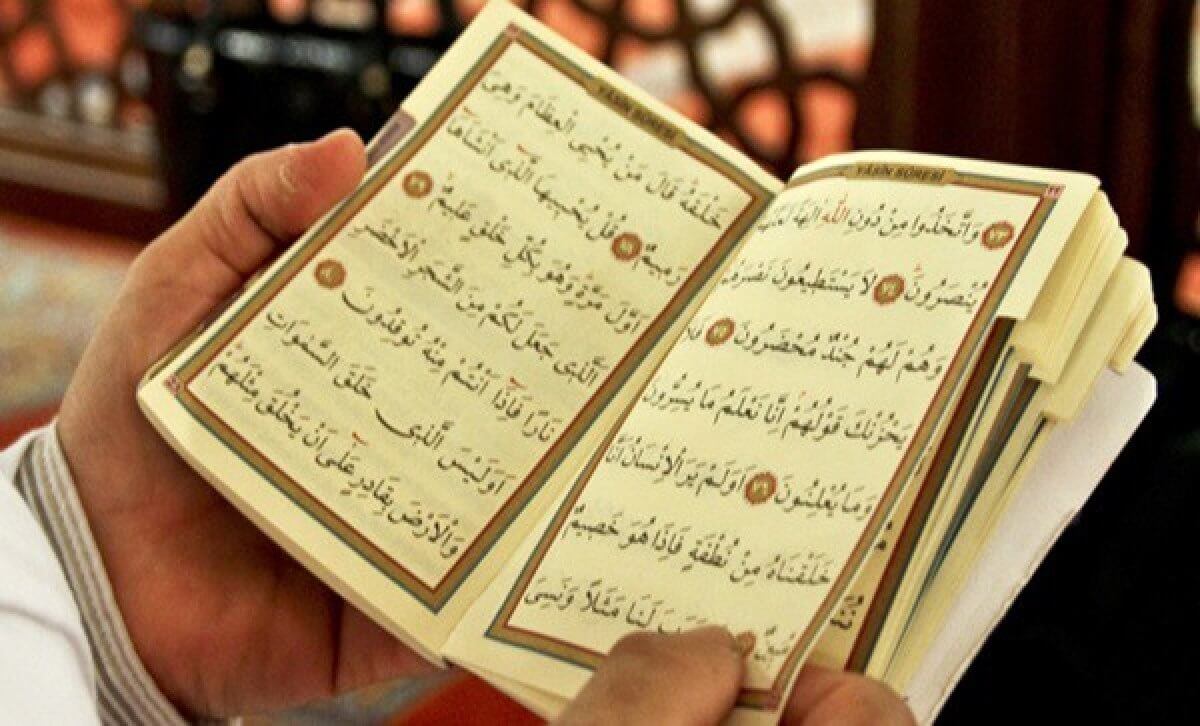 YÂSİN SÛRESİ
وَاتَّخَذُوا مِنْ دُونِ اللّٰهِ اٰلِهَةً
يُنْصَرُونَ لَا يَسْتَطِيعُونَ نَصْرَهُمْ
وَهُمْ لَهُمْ جُنْدٌ مُحْضَرُونَ فَلَا
يَحْزُنْكَ قَوْلُهُمْ اِنَّا نَعْلَمُ مَا يُسِرُّونَ
وَمَا يُعْلِنُونَ اَوَلَمْ يَرَ الْاِنْسَانُ اَنَّا
خَلَقْنَاهُ مِنْ نُطْفَةٍ فَاِذَا هُوَ خَصِيمٌ
مُبِينٌ لَنَا مَثَلًا وَنَسِيَ
YÂSİN SÛRESİ
خَلْقَهُ قَالَ مَنْ يُحْيِي الْعِظَامَ وَهِيَ
رَمِيمٌ قُلْ يُحْيِيهَا الَّذِى اَنْشَاَهَا
اَوَّلَ مَرَّةٍ وَهُوَ بِكُلِّ خَلْقٍ عَلِيمٌ
اَلَّذِى جَعَلَ لَكُمْ مِنَ الشَّجَرِ الْاَخْضَرِ
نَارًا فَاِذَا اَنْتُمْ مِنْهُ تُوقِدُونَ
اَوَلَيْسَ الَّذِى خَلَقَ السَّمٰوَاتِ
وَالْاَرْضَ بِقَادِرٍ عَلٰى اَنْ يَخْلُقَ مِثْلَهُمْ